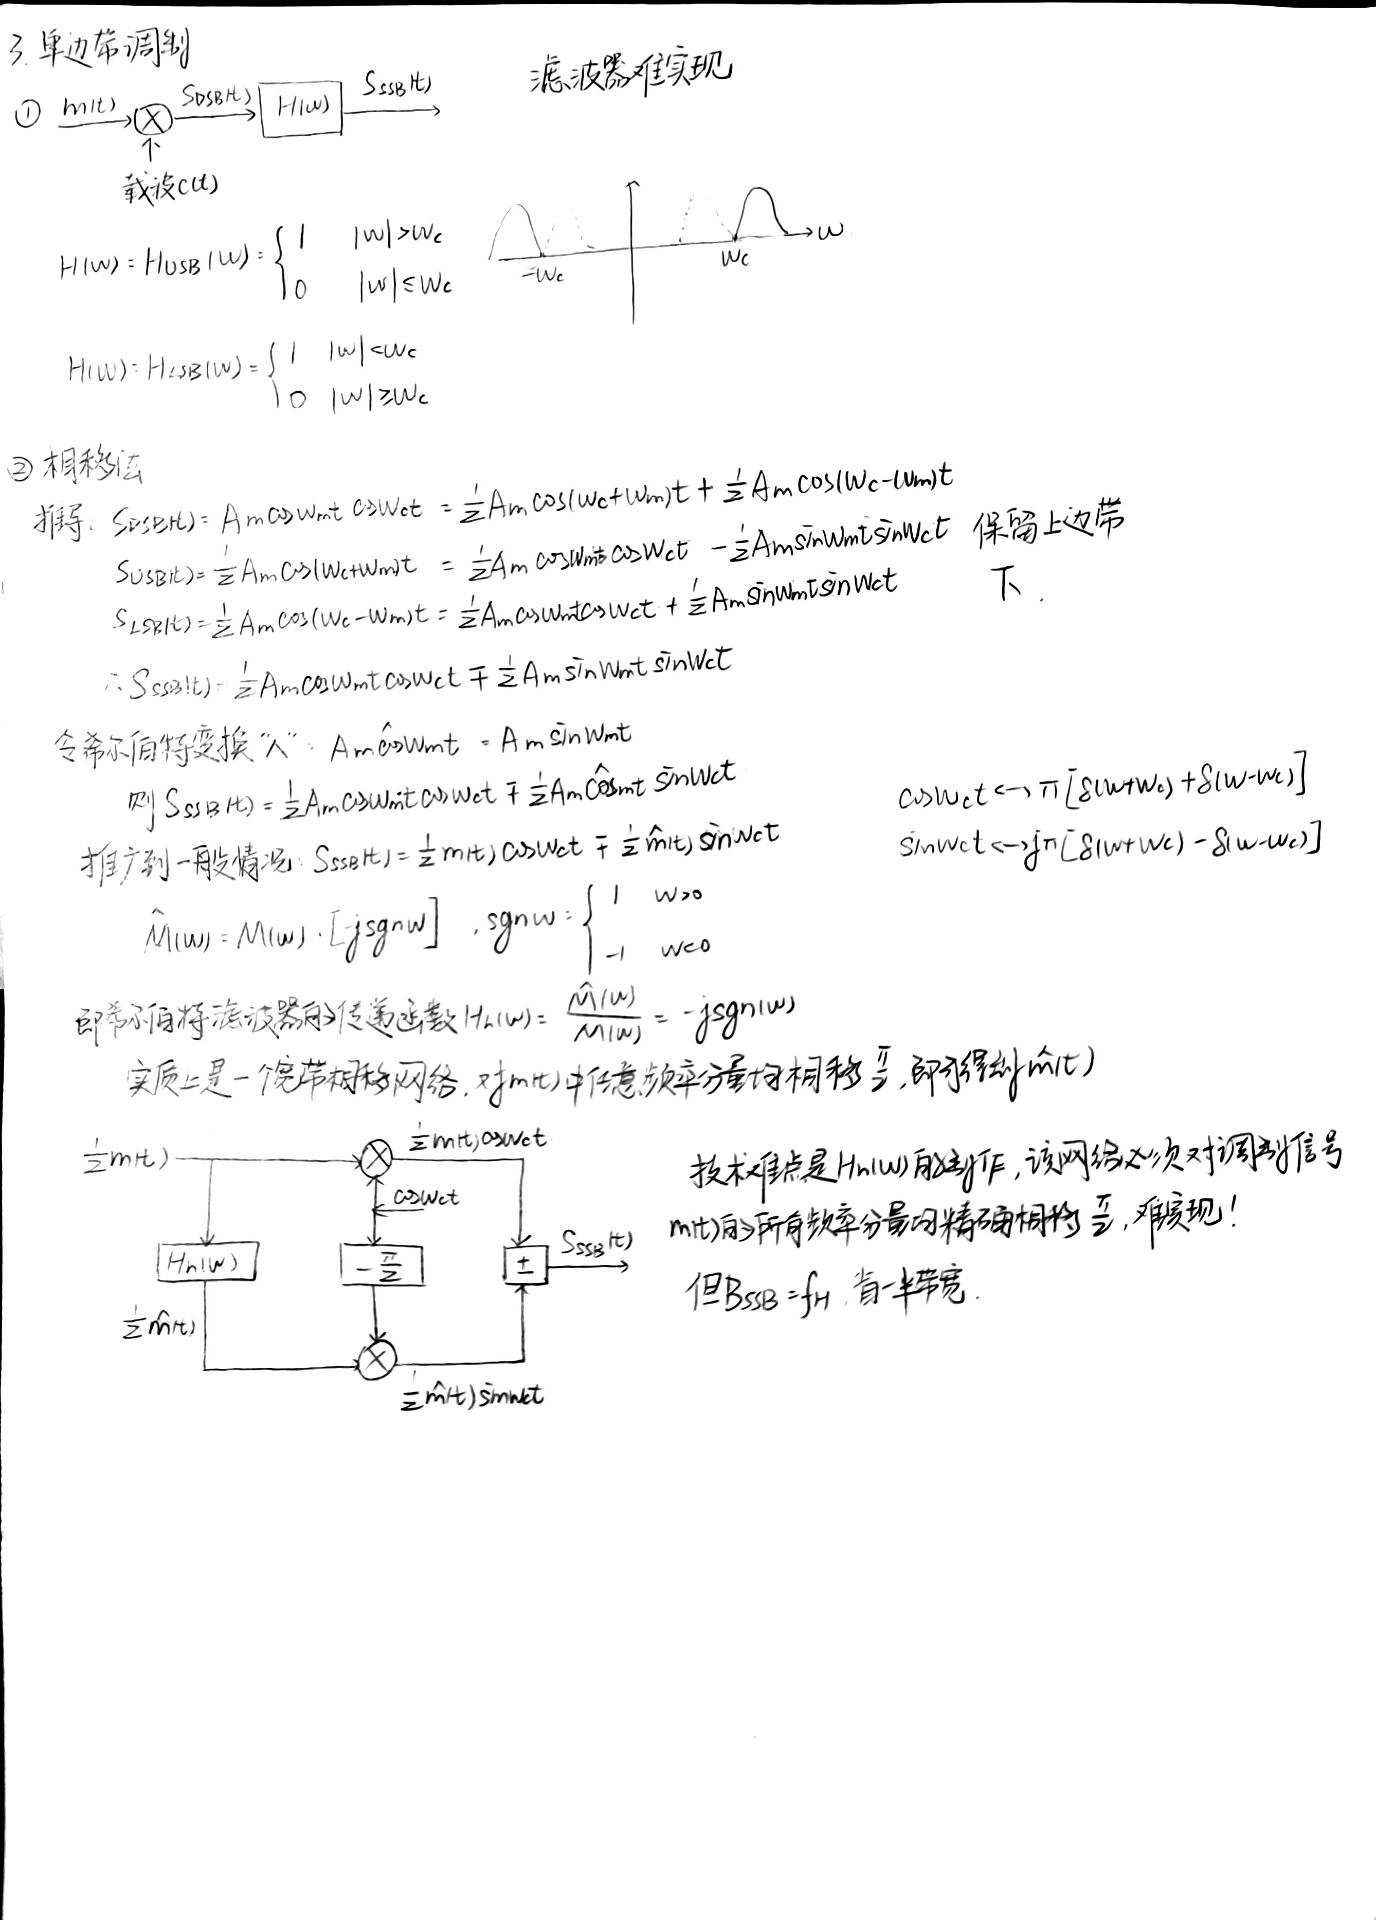 3. 单边带调制
滤波器难实现
① m(t) S_DSB(t) H(w) S_SSB(t)
载波c(t)
H(w) = H_USB(w) = { 1 |w|>w_c
0 |w|≤w_c
-w_c w_c w
H(w) = H_LSB(w) = { 1 |w|<w_c
0 |w|≥w_c
② 相移法
推导: S_DSB(t) = A_m cosw_mt cosw_ct = ½A_m cos(w_c+w_m)t + ½A_m cos(w_c-w_m)t
S_USB(t) = ½A_m cos(w_c+w_m)t = ½A_m cosw_mt cosw_ct - ½A_m sinw_mt sinw_ct 保留上边带
S_LSB(t) = ½A_m cos(w_c-w_m)t = ½A_m cosw_mt cosw_ct + ½A_m sinw_mt sinw_ct 下.
∴ S_SSB(t) = ½A_m cosw_mt cosw_ct ∓ ½A_m sinw_mt sinw_ct
令希尔伯特变换"∧": A_m ĉosw_mt = A_m sinw_mt
则 S_SSB(t) = ½A_m cosw_mt cosw_ct ∓ ½A_m ĉos_mt sinw_ct
cosw_ct ↔ π[δ(w+w_c)+δ(w-w_c)]
推广到一般情况: S_SSB(t) = ½m(t)cosw_ct ∓ ½m̂(t)sinw_ct
sinw_ct ↔ jπ[δ(w+w_c)-δ(w-w_c)]
M̂(w) = M(w)·[-jsgnw], sgnw = { 1 w>0
-1 w<0
即希尔伯特滤波器的传递函数H_h(w) = M̂(w)/M(w) = -jsgn(w)
实质上是一个宽带相移网络,对m(t)中任意频率分量均相移π/2,即可得到m̂(t)
½m(t) ½m(t)cosw_ct
cosw_ct
H_h(w) -π/2 ± S_SSB(t)
½m̂(t)
½m̂(t)sinw_ct
技术难点是H_h(w)的制作,该网络必须对调制信号
m(t)的所有频率分量均精确相移π/2,难实现!
但B_SSB=f_H,省一半带宽.